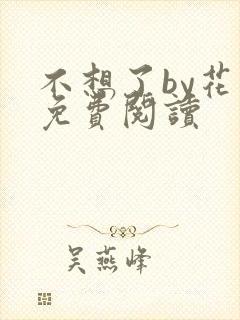 不想了by花
免費閱讀
吴燕峰